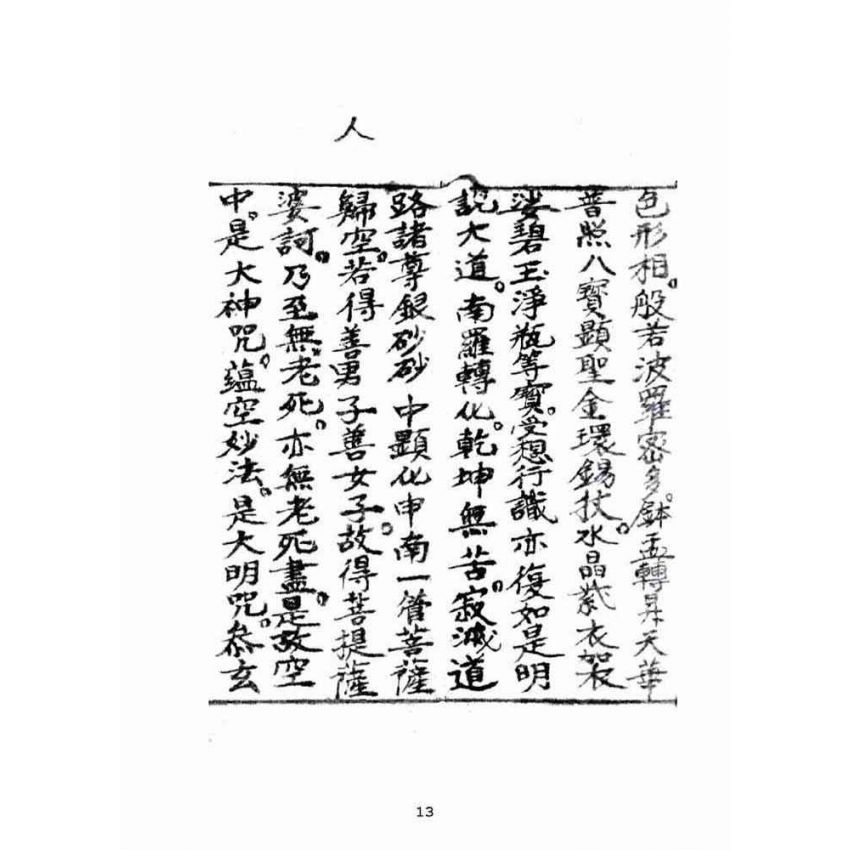 人
色形相。般若波羅密多。鉢盂轉昇天華
普照八寶顯聖金環錫杖。水晶 衣袈
娑碧玉淨瓶等寶。受想行識亦復如是明
說大道。南羅轉化。乾坤無苦。寂滅道
路諸尊銀砂砂中顯化申南一管菩薩
歸空。若得善男子善女子。故得菩提薩
婆訶。乃至無老死。亦無老死盡。是故空
中。是大神咒。蘊空妙法。是大明咒。叅玄
13